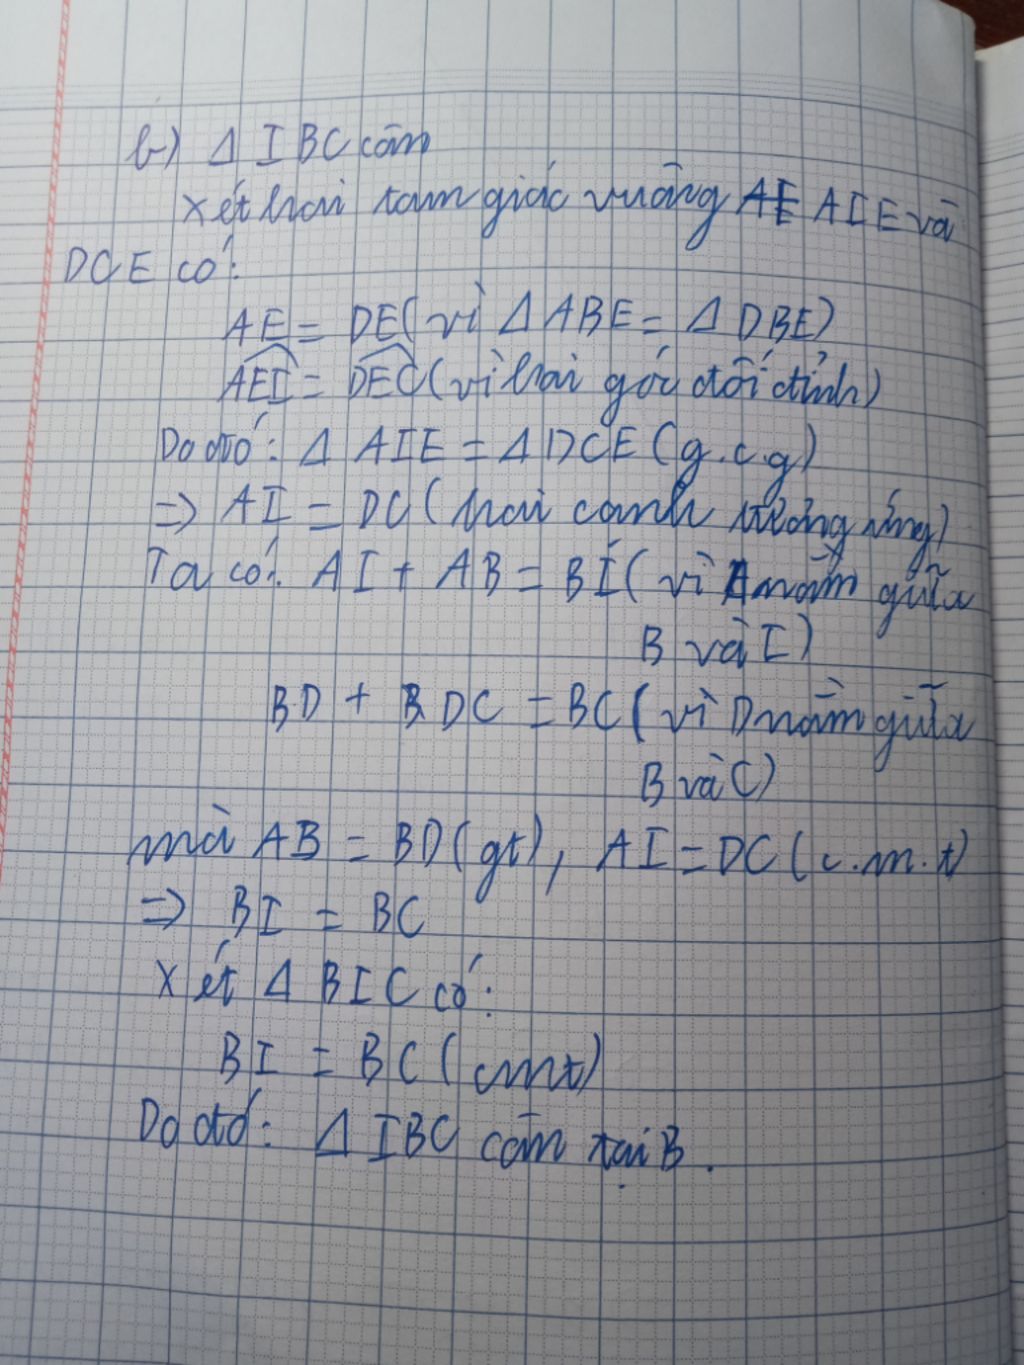 b) Δ IBC cân
Xét hai tam giác vuông AE AIE và
DCE có:
AE = DE (vì Δ ABE = Δ DBE)
AEI = DEC (vì hai góc đối đỉnh)
Do đó: Δ AIE = Δ DCE (g.c.g)
=> AI = DC (hai cạnh tương ứng)
Ta có: AI + AB = BI (vì A nằm giữa
B và I)
BD + B DC = BC (vì D nằm giữa
B và C)
mà AB = BD (gt), AI = DC (c.m.t)
=> BI = BC
Xét Δ BIC có:
BI = BC (cmt)
Do đó: Δ IBC cân tại B.